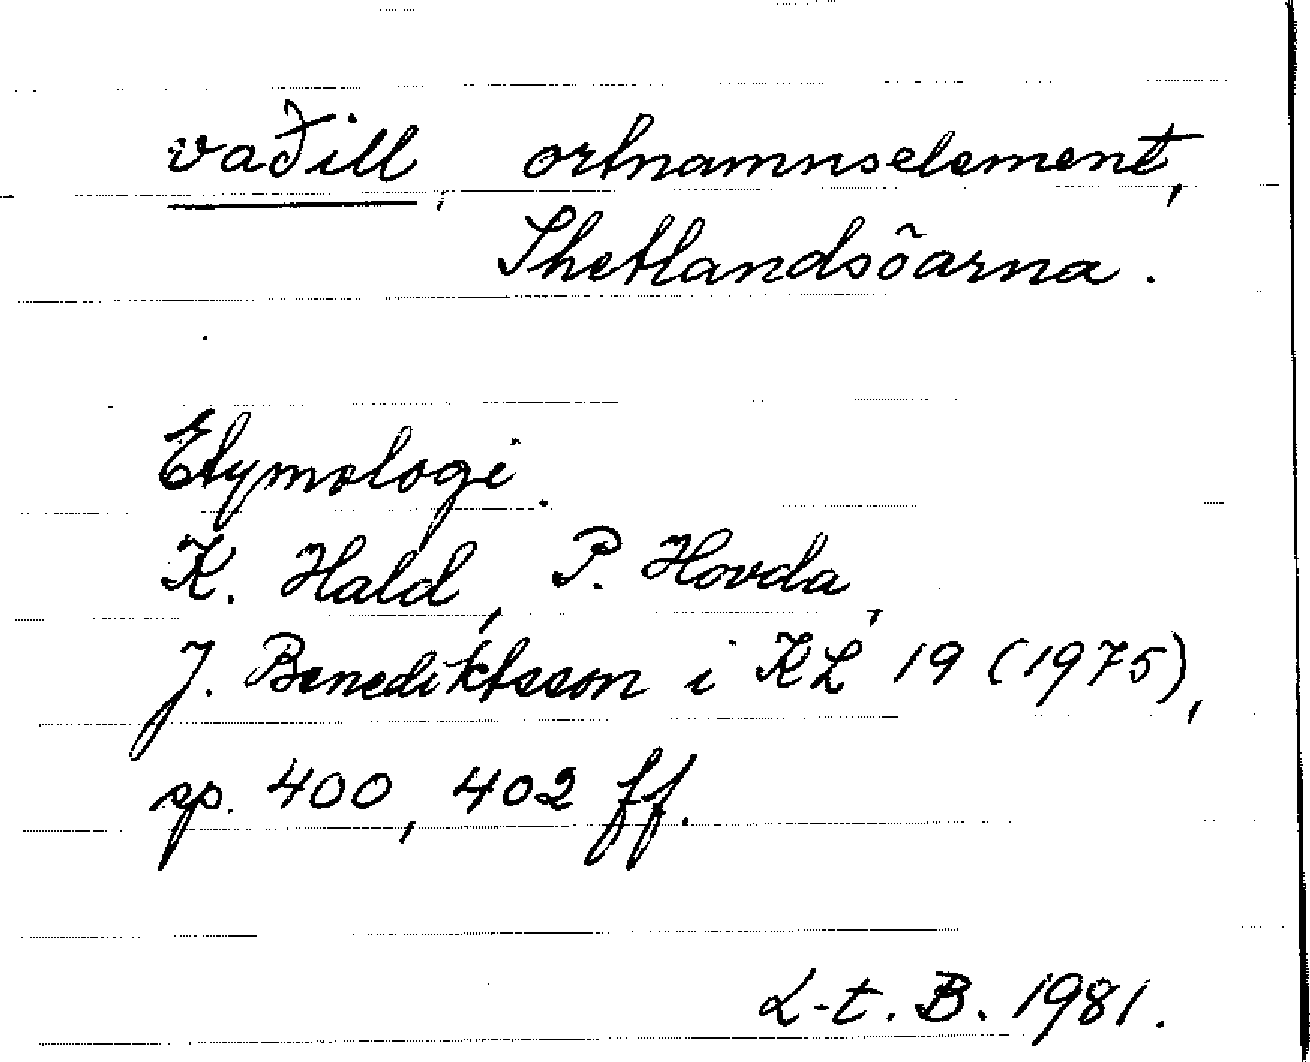 vaðill, ortnamnselement,
Shetlandsöarna.
Etymologi.
K. Hald, P. Hovda,
J. Benediktsson i KL 19 (1975),
sp. 400, 402 ff.
L-t. B. 1981.